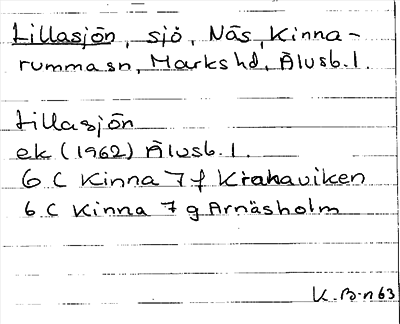 Lillasjön, sjö, Näs, Kinna-
rumma sn, Marks hd, Älvsb. l.
Lillasjön
ek (1962) Älvsb. l.
6 C Kinna 7 f Krokaviken
6 C Kinna 7 g Arnäsholm
K. B-n 63